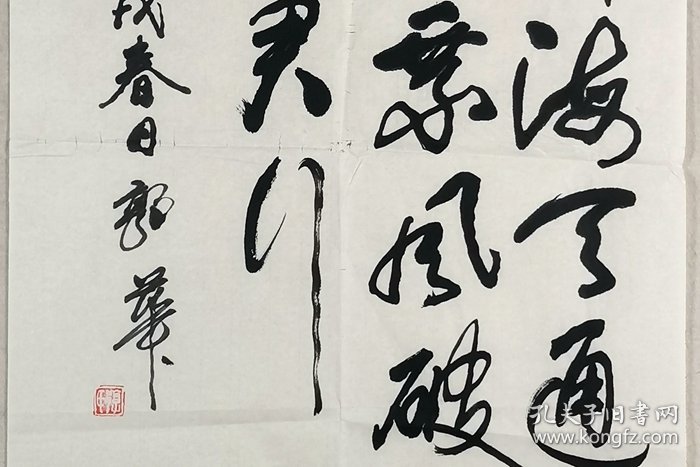 海天通
乘風破
君行
戌春日郭華
孔夫子旧书网
www.kongfz.com